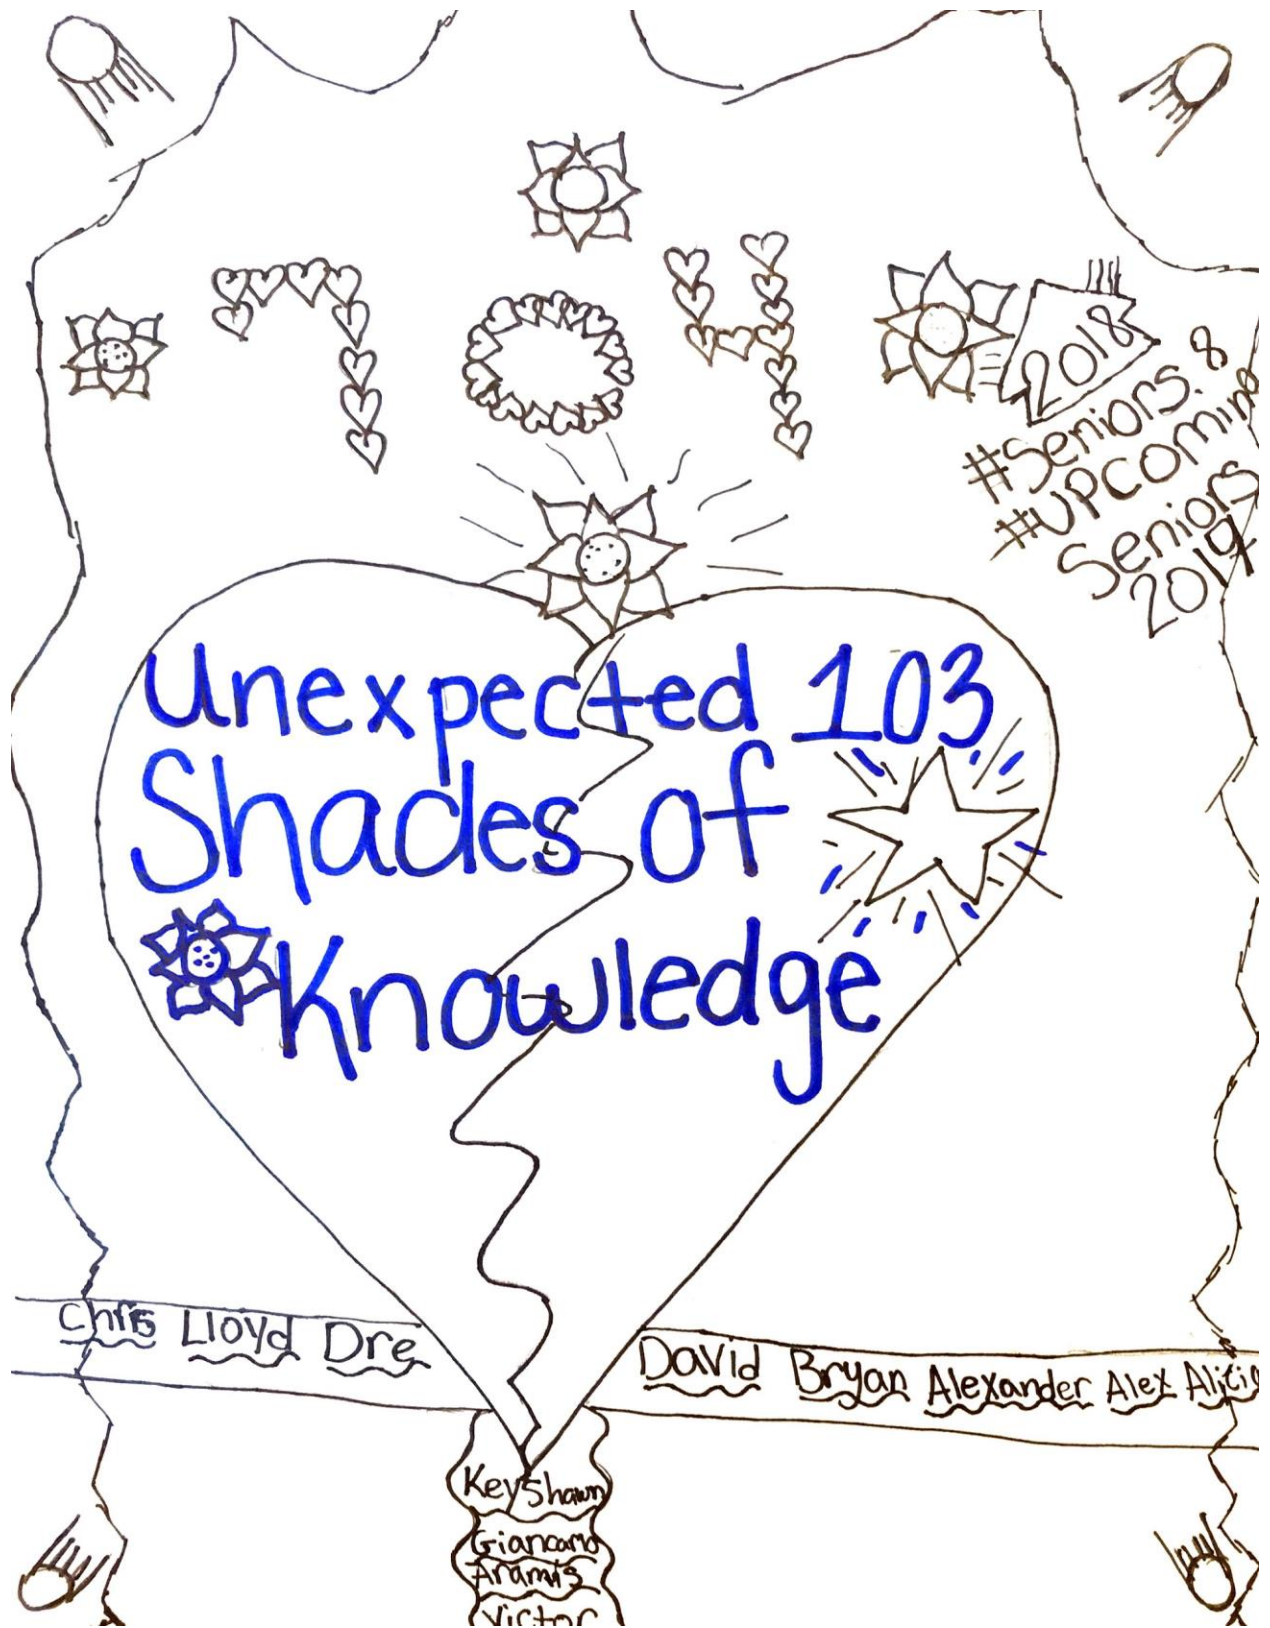 704
2018
#Seniors. 8
#UPComing
Seniors
2019
Unexpected 103
Shades of
Knowledge
Chris Lloyd Dre
David Bryan Alexander Alex
KeyShawn
Giancarlo
Aramis
Victor